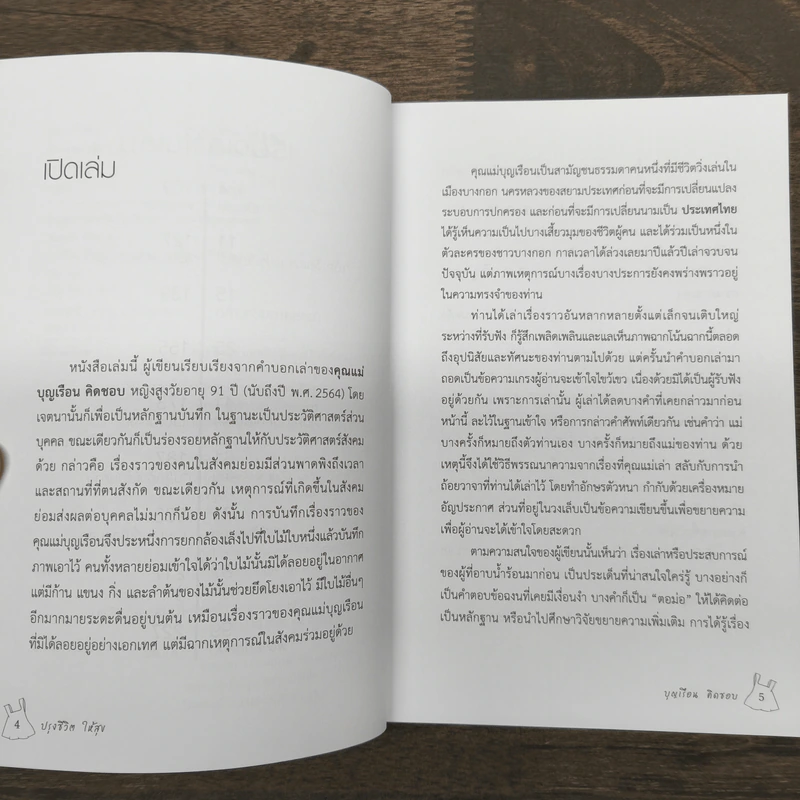 เปิดเล่ม
หนังสือเล่มนี้ ผู้เขียนเรียบเรียงจากคำบอกเล่าของคุณแม่
บุญเรือน คิดชอบ หญิงสูงวัยอายุ 91 ปี (นับถึงปี พ.ศ. 2564) โดย
เจตนานั้นก็เพื่อเป็นหลักฐานบันทึก ในฐานะเป็นประวัติศาสตร์ส่วน
บุคคล ขณะเดียวกันก็เป็นร่องรอยหลักฐานให้กับประวัติศาสตร์สังคม
ด้วย กล่าวคือ เรื่องราวของคนในสังคมย่อมมีส่วนพาดพิงถึงเวลา
และสถานที่ที่ตนสังกัด ขณะเดียวกัน เหตุการณ์ที่เกิดขึ้นในสังคม
ย่อมส่งผลต่อบุคคลไม่มากก็น้อย ดังนั้น การบันทึกเรื่องราวของ
คุณแม่บุญเรือนจึงประหนึ่งการยกกล้องเล็งไปที่ใบไม้ใบหนึ่งแล้วบันทึก
ภาพเอาไว้ คนทั้งหลายย่อมเข้าใจได้ว่าใบไม้นั้นมิได้ลอยอยู่ในอากาศ
แต่มีก้าน แขนง กิ่ง และลำต้นของไม้นั้นช่วยยึดโยงเอาไว้ มีใบไม้อื่นๆ
อีกมากมายระตะดื่นอยู่บนต้น เหมือนเรื่องราวของคุณแม่บุญเรือน
ที่มิได้ลอยอยู่อย่างเอกเทศ แต่มีฉากเหตุการณ์ในสังคมร่วมอยู่ด้วย
4 ปรุงชีวิต ให้สุข
คุณแม่บุญเรือนเป็นสามัญชนธรรมดาคนหนึ่งที่มีชีวิตวิ่งเล่นใน
เมืองบางกอก นครหลวงของสยามประเทศก่อนที่จะมีการเปลี่ยนแปลง
ระบอบการปกครอง และก่อนที่จะมีการเปลี่ยนนามเป็น ประเทศไทย
ได้รู้เห็นความเป็นไปบางเสี้ยวมุมของชีวิตผู้คน และได้ร่วมเป็นหนึ่งใน
ตัวละครของชาวบางกอก กาลเวลาได้ล่วงเลยมาปีแล้วปีเล่าจวบจน
ปัจจุบัน แต่ภาพเหตุการณ์บางเรื่องบางประการยังคงพร่างพราวอยู่
ในความทรงจำของท่าน
ท่านได้เล่าเรื่องราวอันหลากหลายตั้งแต่เล็กจนเติบใหญ่
ระหว่างที่รับฟัง ก็รู้สึกเพลิดเพลินและแลเห็นภาพฉากโน้นฉากนี้ตลอด
ถึงอุปนิสัยและทัศนะของท่านตามไปด้วย แต่ครั้นนำคำบอกเล่ามา
ถอดเป็นข้อความเกรงผู้อ่านจะเข้าใจไขว้เขว เนื่องด้วยมิได้เป็นผู้รับฟัง
อยู่ด้วยกัน เพราะการเล่านั้น ผู้เล่าได้ลดบางคำที่เคยกล่าวมาก่อน
หน้านี้ ละไว้ในฐานเข้าใจ หรือการกล่าวคำศัพท์เดียวกัน เช่นคำว่า แม่
บางครั้งก็หมายถึงตัวท่านเอง บางครั้งก็หมายถึงแม่ของท่าน ด้วย
เหตุนี้จึงได้ใช้วิธีพรรณนาความจากเรื่องที่คุณแม่เล่า สลับกับการนำ
ถ้อยวาจาที่ท่านได้เล่าไว้ โดยทำอักษรตัวหนา กำกับด้วยเครื่องหมาย
อัญประกาศ ส่วนที่อยู่ในวงเล็บเป็นข้อความเขียนขึ้นเพื่อขยายความ
เพื่อผู้อ่านจะได้เข้าใจโดยสะดวก
ตามความสนใจของผู้เขียนนั้นเห็นว่า เรื่องเล่าหรือประสบการณ์
ของผู้ที่อาบน้ำร้อนมาก่อน เป็นประเด็นที่น่าสนใจใคร่รู้ บางอย่างก็
เป็นคำตอบข้อฉงนที่เคยมีเงื่อนงำ บางคำก็เป็น “ตอม่อ” ให้ได้คิดต่อ
เป็นหลักฐาน หรือนำไปศึกษาวิจัยขยายความเพิ่มเติม การได้รู้เรื่อง
บุญเรือน คิดชอบ 5